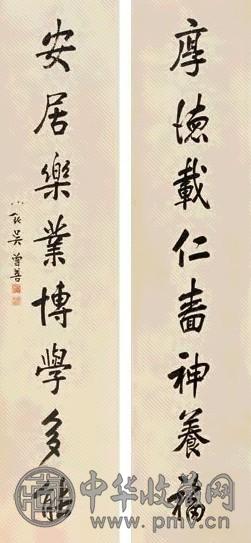 厚德載仁嗇神養福
安居樂業博學多能
吳曾善
中华收藏网
www.pmv.cn